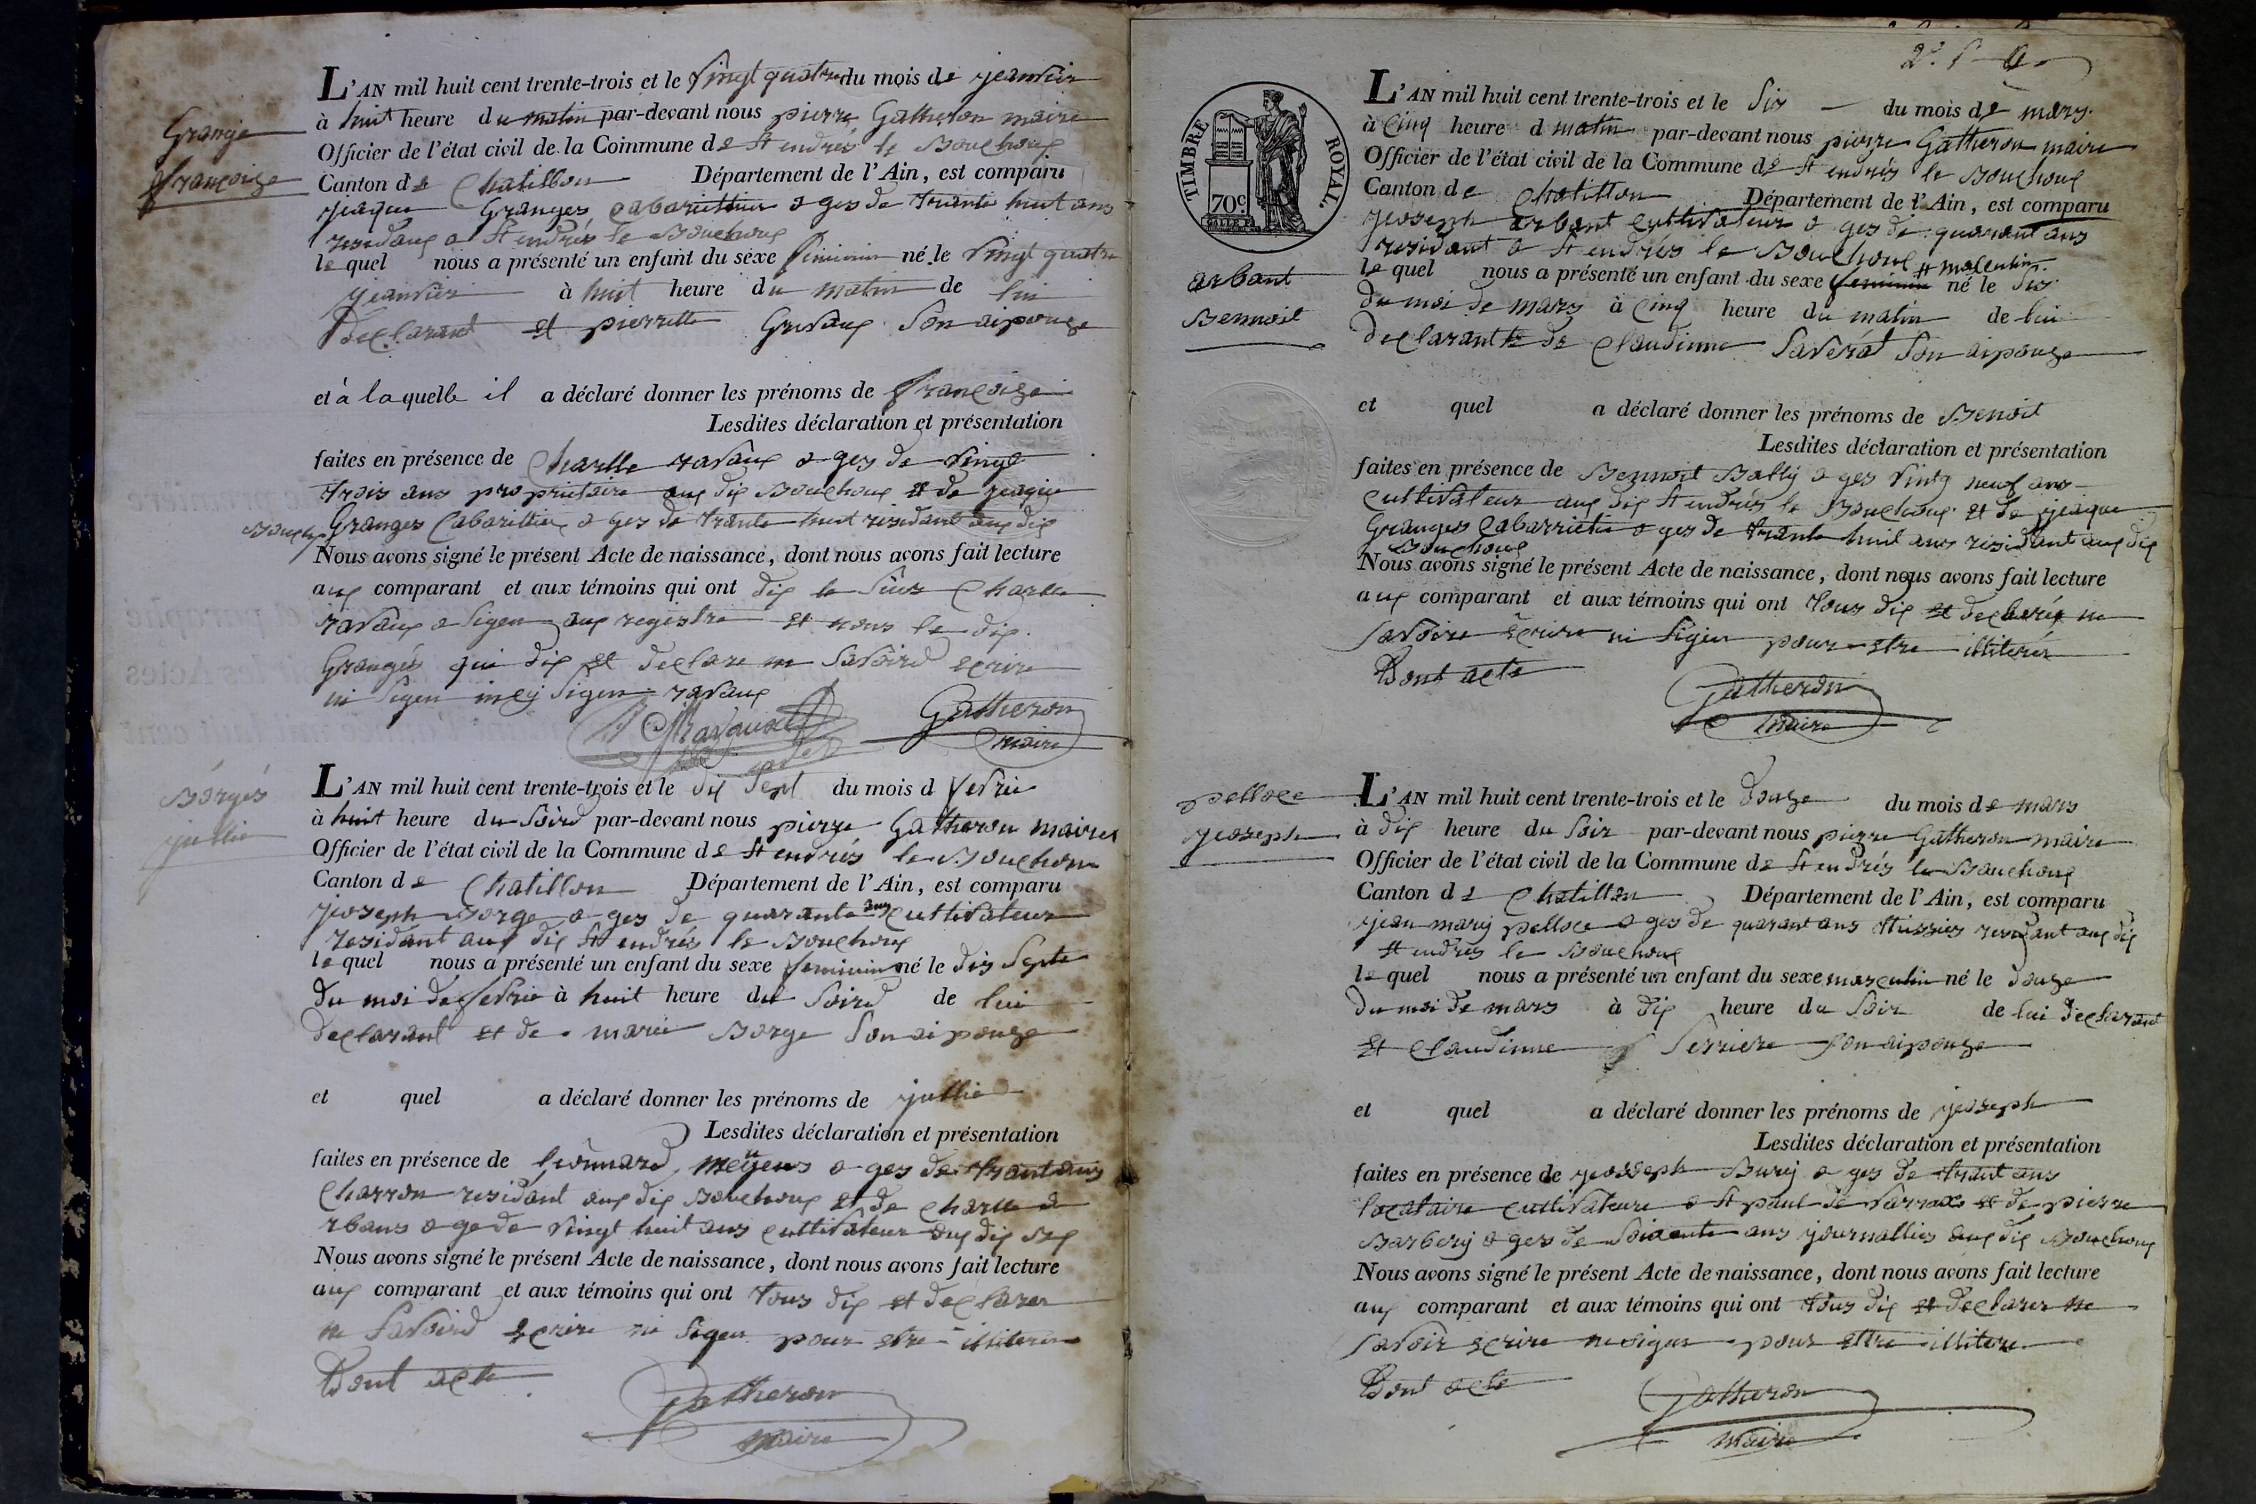 Grange
françoize
L'AN mil huit cent trente-trois et le vingt quatre du mois de jeanvier
à huit heure du matin par-devant nous pierre Gatheron maire
Officier de l'état civil de la Commune de St endrés le Bouchoux
Canton de Chatillon Département de l'Ain, est comparu
jeaque Granges cabarittier a ges de trante huit ans
residans a St endrés le Bouchoux
le quel nous a présenté un enfant du sexe feminin né le vingt quatre
jeanvier à huit heure du matin de lui
declarant et pierrette Gravaux son aipouze
et à laquelle il a déclaré donner les prénoms de françoize
Lesdites déclaration et présentation
faites en présence de Charlle ravaux a ges de vingt
trois ans propriétaire aux dix Bouchoux et de jeaque
Granges Cabarittier a ges de trante huit residant aux dix
Bouchoux
Nous avons signé le présent Acte de naissance, dont nous avons fait lecture
aux comparant et aux témoins qui ont dix le sieur Charle
ravaux a sigen aux registre et nous le dix
Grangés qui dix et declare ne savoird ecrire
ni sigen sigen ravaux
Ravaux Gatheron
maire
Borgés
jullie
L'AN mil huit cent trente-trois et le dix sept du mois d fevrie
à huit heure du soird par-devant nous pierre Gatheron maires
Officier de l'état civil de la Commune de St endrés le Bouchoux
Canton de Chatillon Département de l'Ain, est comparu
joseph Borge a ges de quarante ans cuttivateur
residant aux dix St endrés le Bouchoux
le quel nous a présenté un enfant du sexe feminin né le dix septe
du moi de fevrie à huit heure du soird de lui
declarant et de marie Borge son aipouze
et quel a déclaré donner les prénoms de jullie
Lesdites déclaration et présentation
faites en présence de a ges de trant ans
Charron residant aux dix Bouchoux et de Charle a
rbans a ge de vingt huit ans cuttivateur aux dix
Nous avons signé le présent Acte de naissance, dont nous avons fait lecture
aux comparant et aux témoins qui ont tous dix et declarer
ne savoird ecrire ni sigen pour etre
Dont acte
Gatheron
maire
TIMBRE ROYAL.
70c.
arbant
Bennoit
L'AN mil huit cent trente-trois et le six du mois de mars
à cinq heure d matin par-devant nous pierre Gatheron maire
Officier de l'état civil de la Commune de St endrés le Bouchoux
Canton de Chatillon Département de l'Ain, est comparu
joseph arbant cuttivateur a ges de quarant ans
residant a St endrés le Bouchoux
le quel nous a présenté un enfant du sexe feminin né le six
du moi de mars à cinq heure du matin de lui
declarant de Claudinne Saverat son aipouze
et quel a déclaré donner les prénoms de Benoit
Lesdites déclaration et présentation
faites en présence de Bennoit Bally a ges vintg neuf ans
cuttivateur aux dix St endrés le Bouchoux et de jeaque
Granges Cabarrietie a ges de trante huit ans residant aux dix
Bouchoux
Nous avons signé le présent Acte de naissance, dont nous avons fait lecture
aux comparant et aux témoins qui ont tous dix et declarés ne
savoire ecrire ni sigen pour etre illiterés
Dont acte
Gatheron
maire
pelloce
joseph
L'AN mil huit cent trente-trois et le douze du mois de mars
à dix heure du soir par-devant nous pierre Gatheron maire
Officier de l'état civil de la Commune de St endrés le Bouchoux
Canton de Chatillon Département de l'Ain, est comparu
jean marij pelloce a ges de quarant ans ttissies residant aux dix
St endrés le Bouchoux
le quel nous a présenté un enfant du sexe masculin né le douze
du moi de mars à dix heure du soir de lui declarant
et Claudinne Serriere son aipouze
et quel a déclaré donner les prénoms de joseph
Lesdites déclaration et présentation
faites en présence de josseph Burij a ges de trant ans
locataire cuttivateure a St paul de varrax et de pierre
Barberij a ges de soixente ans journallies aux dix Bouchoux
Nous avons signé le présent Acte de naissance, dont nous avons fait lecture
aux comparant et aux témoins qui ont tous dix et declarer ne
savoir ecrire ne sigen pour ettre illitere
Dont acte
Gatheron
maire